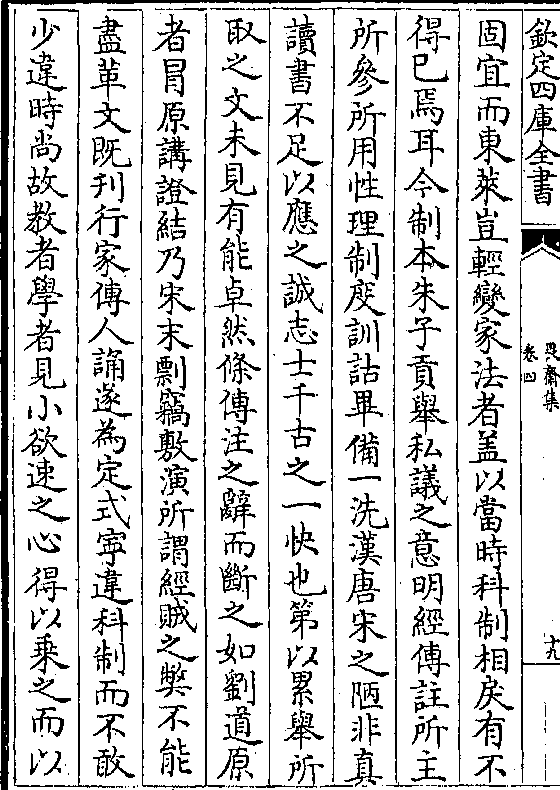 欽定四庫全書
畏齋集
卷四
十九
固宜而東萊豈輕變家法者盖以當時科制相戾有不
得已焉耳今制本朱子貢舉私議之意明經傳註所主
所參所用性理制度訓詁畢備一洗漢唐宋之陋非真
讀書不足以應之誠志士千古之一快也第以累舉所
取之文未見有能卓然條傳注之辭而斷之如劉道原
者冒原講證結乃宋末剽竊敷演所謂經賊之獘不能
盡革文既刋行家傳人誦遂為定式寕違科制而不敢
少違時尚故教者學者見小欲速之心得以乗之而以